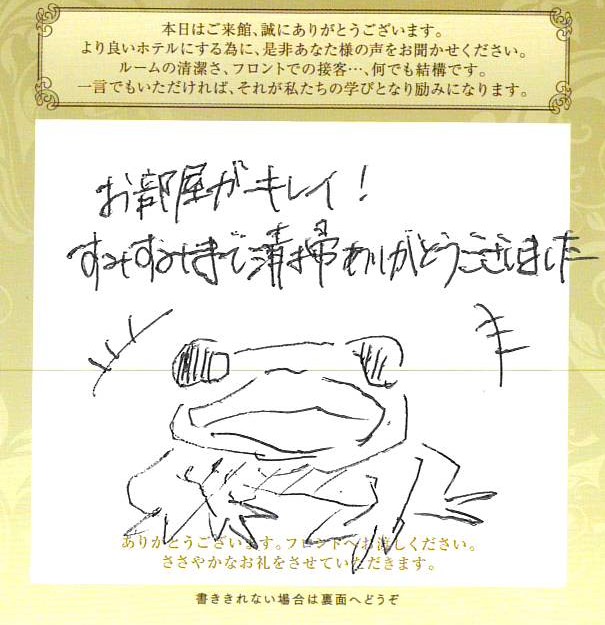 本日はご来館、誠にありがとうございます。
より良いホテルにする為に、是非あなた様の声をお聞かせください。
ルームの清潔さ、フロントでの接客…、何でも結構です。
一言でもいただければ、それが私たちの学びとなり励みになります。
お部屋がキレイ！
すみずみまで清掃ありがとうございました
ありがとうございます。フロントへお渡しください。
ささやかなお礼をさせていただきます。
書ききれない場合は裏面へどうぞ